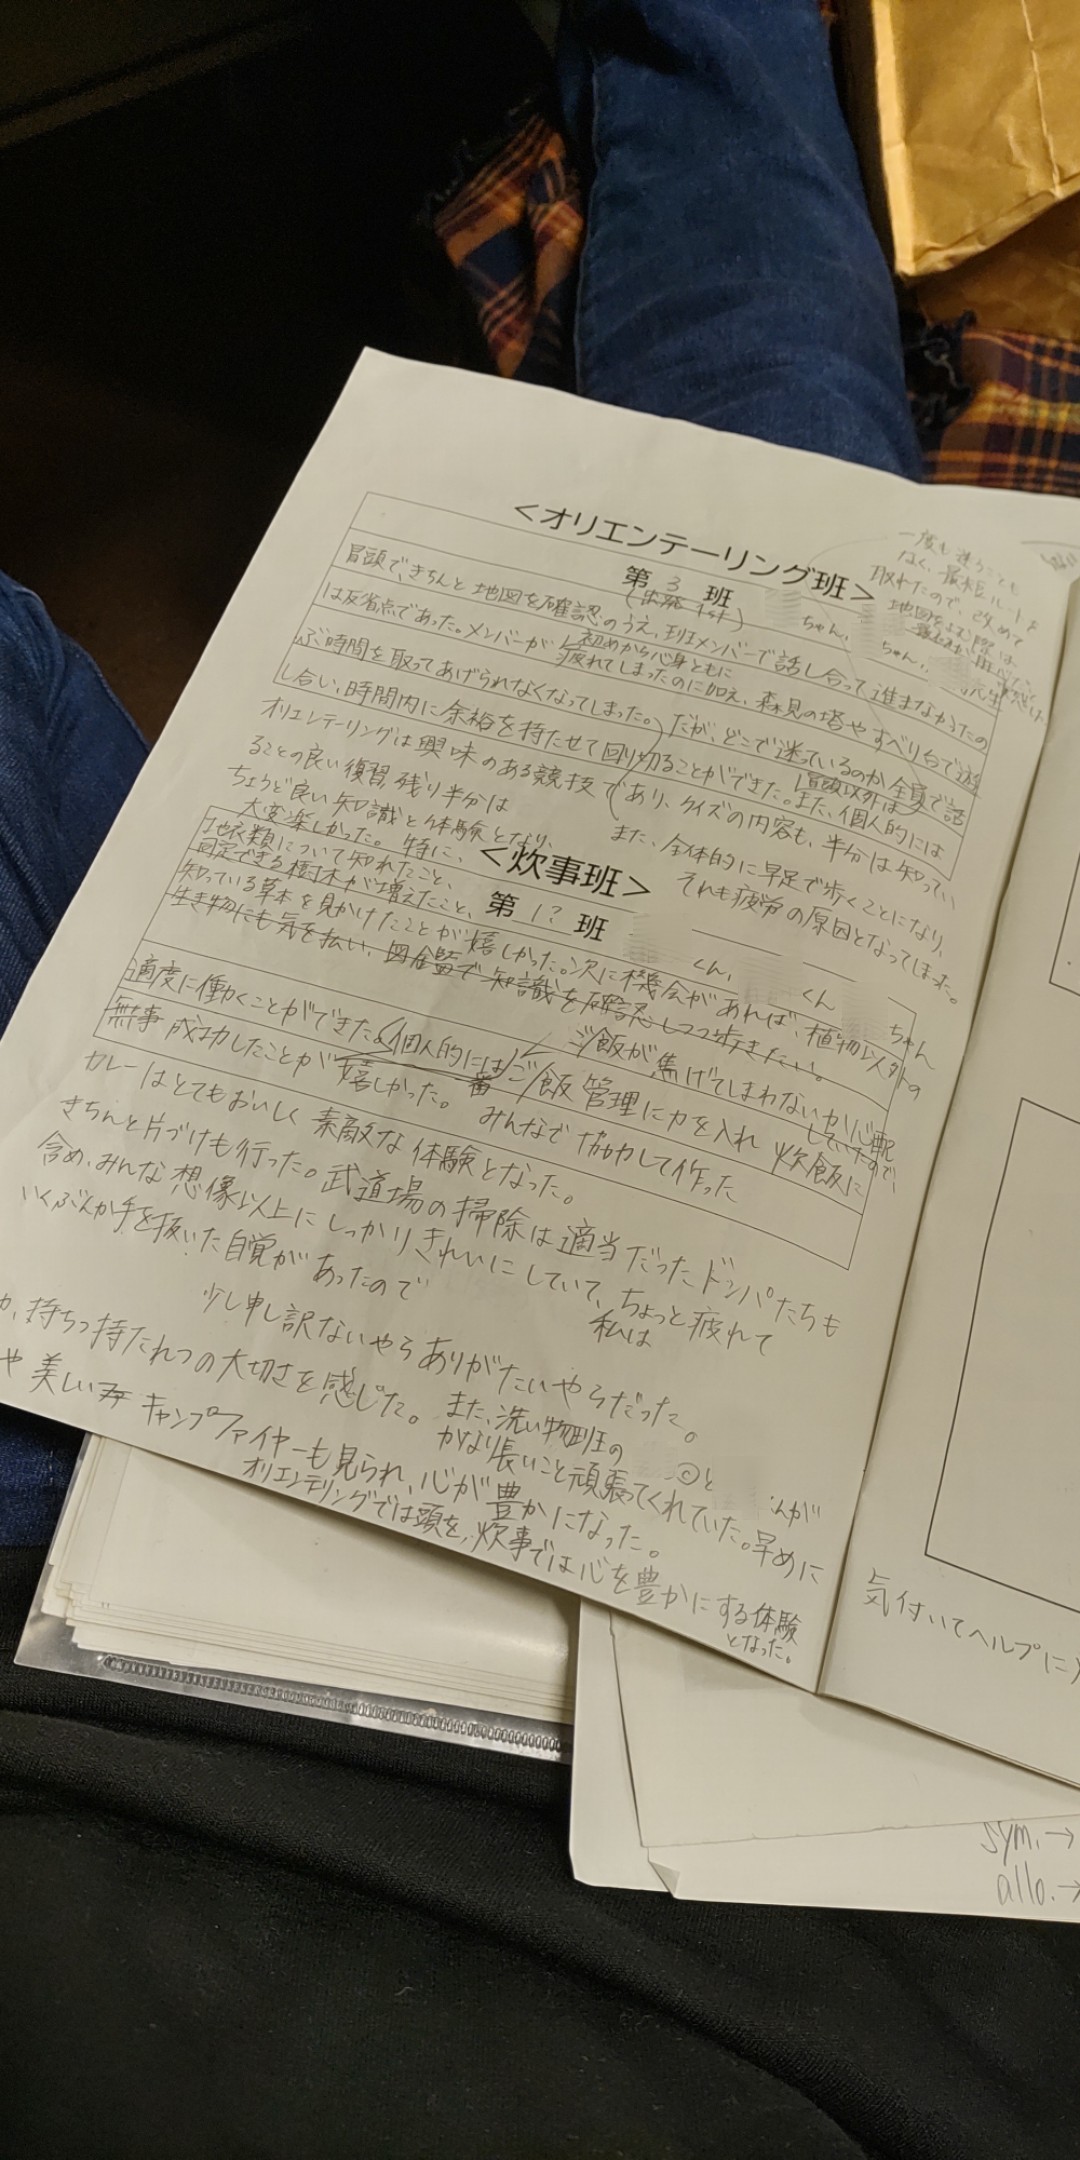 <オリエンテーリング班>
第 3 班
(出発 1st)
ちゃん、
ちゃん、
先生
一度も迷うことも
なく、最長ルートを
取れたので、改めて
地図をよむ際は
冒頭で、きちんと地図を確認のうえ、班メンバーで話し合って進まなかったの
は反省点であった。メンバーが初めから心身ともに
疲れてしまったのに加え、森見の塔やすべり台で遊
ぶ時間を取ってあげられなくなってしまった。だが、どこで迷っているのか全員で話
し合い、時間内に余裕を持たせて回り切ることができた。また、個人的には
冒頭以外は
オリエンテーリングは興味のある競技であり、クイズの内容も、半分は知ってい
ることの良い復習、残り半分は
ちょうど良い知識と体験となり、
大変楽しかった。特に、
また、全体的に早足で歩くことになり、
それも疲労の原因となってしまった。
地衣類について知れたこと、
同定できる樹木が増えたこと、
知っている草本を見かけたことが嬉しかった。次に機会があれば、植物以外の
生き物にも気を払い、図鑑で知識を確認しつつ歩きたい。
<炊事班>
第 1? 班
くん、
くん
ちゃん
適度に働くことができた。個人的には
ご飯が焦げてしまわないか心配
していたので、
一番ご飯管理に力を入れ 炊飯に
無事成功したことが嬉しかった。みんなで協力して作った
カレーはとてもおいしく素敵な体験となった。
きちんと片づけも行った。武道場の掃除は適当だったドンパたちも
含め、みんな想像以上にしっかりきれいにしていて、ちょっと疲れて
いくぶんか手を抜いた自覚があったので
私は
少し申し訳ないやらありがたいやらだった。
か、持ちつ持たれつの大切さを感じた。また、洗い物班の
と
んが
かなり長いこと頑張ってくれていた。早めに
や美しいキャンプファイヤーも見られ、心が豊かになった。
オリエンテリングでは頭を、炊事では心を豊かにする体験
となった。
気付いてヘルプに
sym. →
allo. →